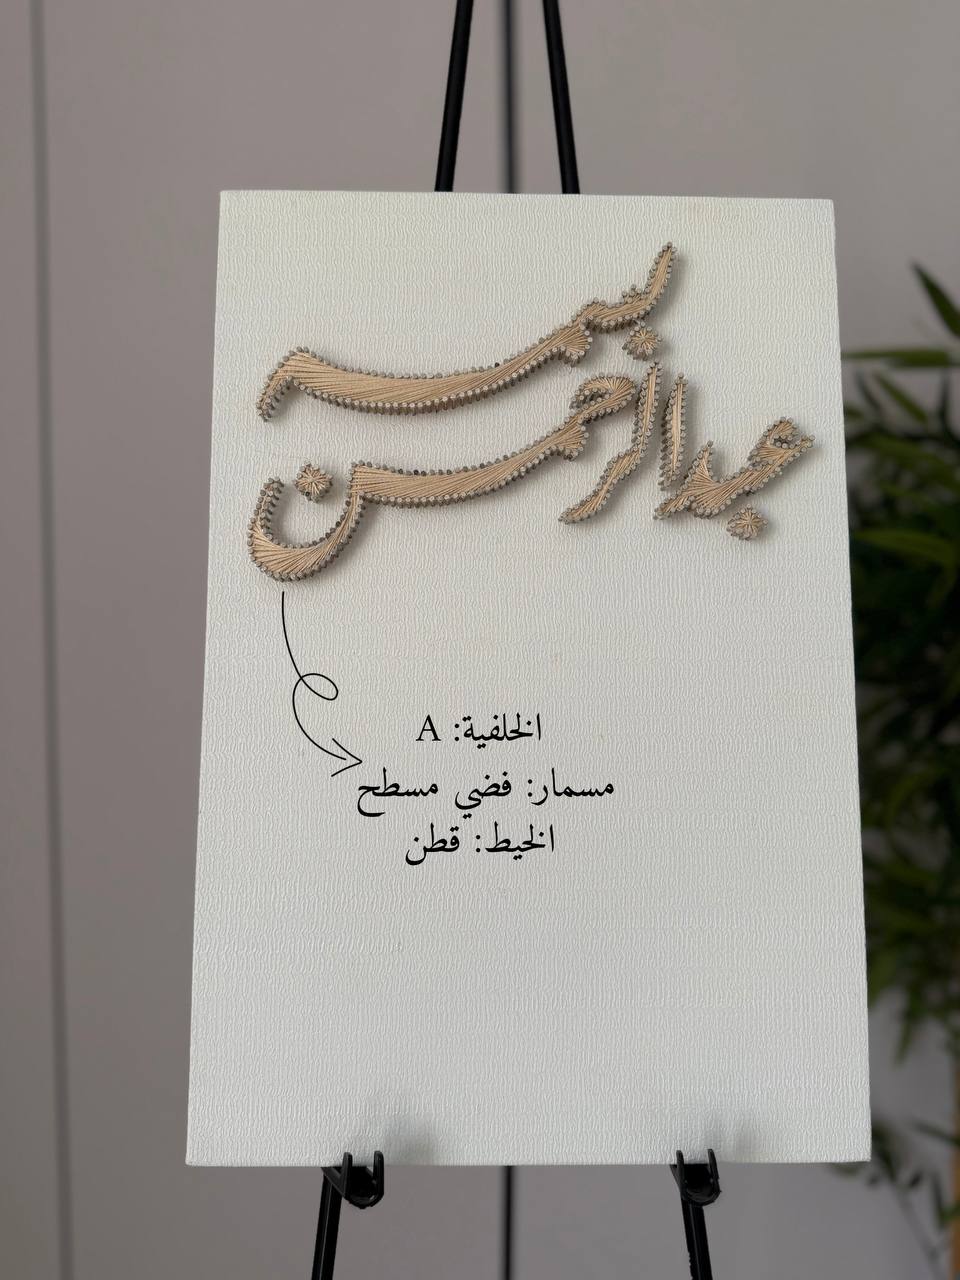 بسمه
عبدالرحمن
الخلفية: A
مسمار: فضي مسطح
الخيط: قطن